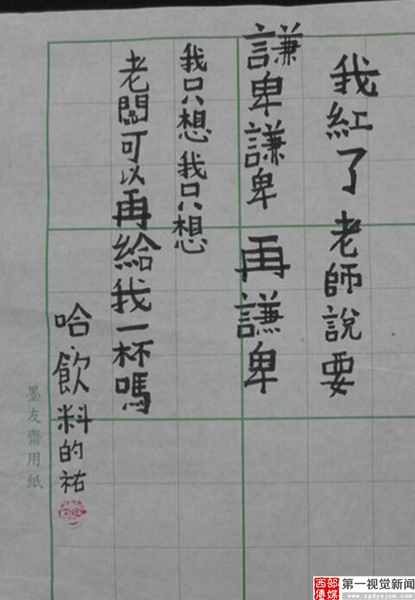 我紅了老師說要
謙卑謙卑再謙卑
我只想我只想
老闆可以再給我一杯嗎
哈.飲料的祐
墨友齋用紙
西部傳媒
第一视觉新闻
www.zgdysjxw.com